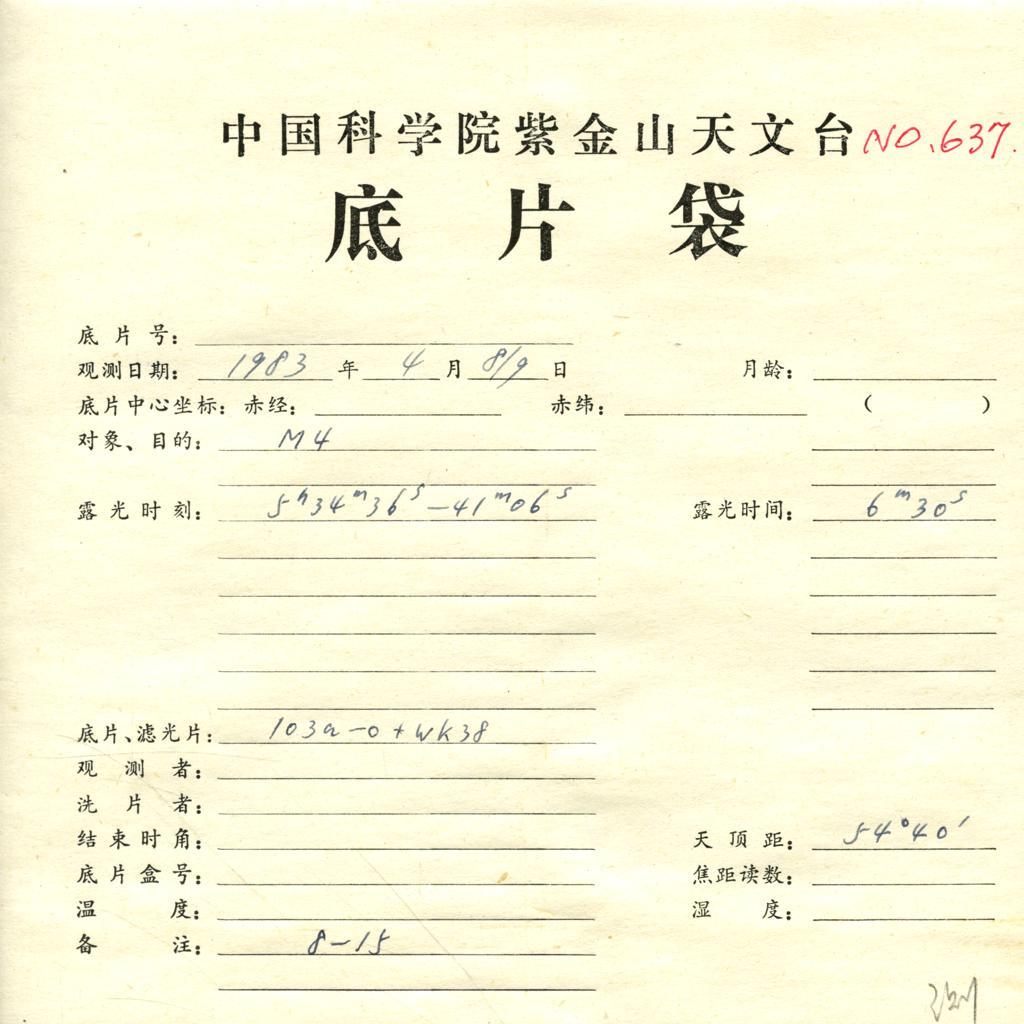 中国科学院紫金山天文台 NO.637.
底片袋
底片号：
观测日期： 1983 年 4 月 8/9 日 月龄：
底片中心坐标：赤经： 赤纬： （ ）
对象、目的： M4
露光时刻： 5h34m36s－41m06s 露光时间： 6m30s
底片、滤光片： 103a-o + WK38
观测者：
洗片者：
结束时角： 天顶距： 54°40′
底片盒号： 焦距读数：
温度： 湿度：
备注： 8-15